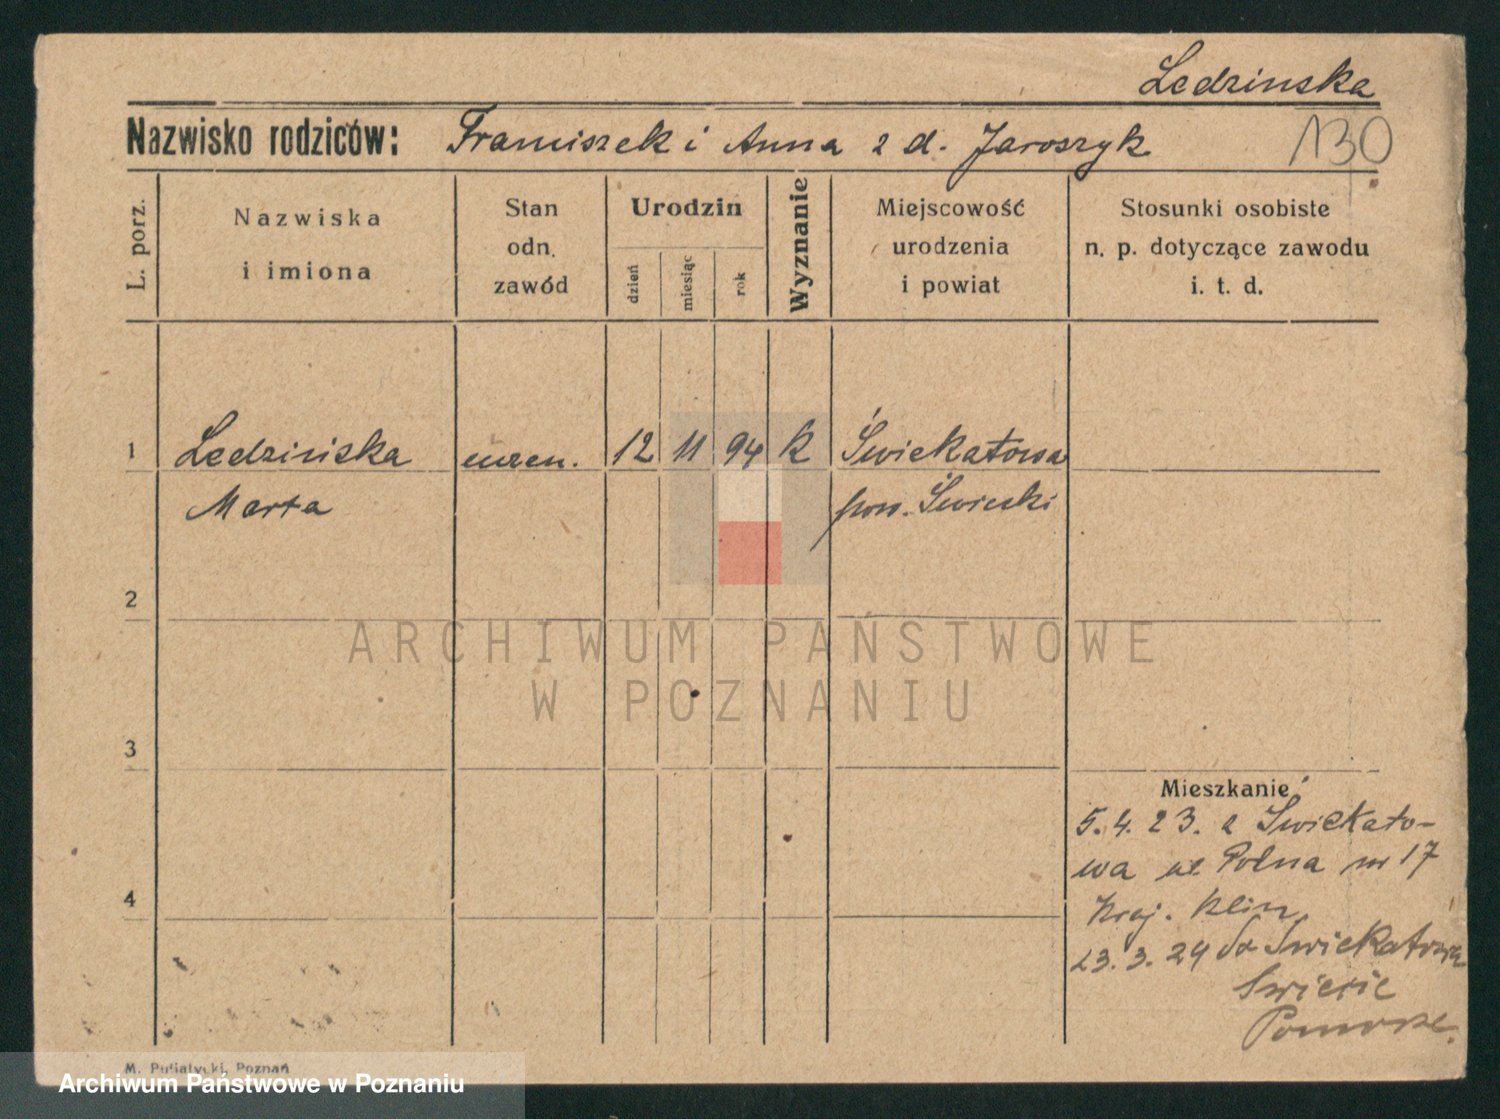 Ledzinska
Nazwisko rodziców: Franciszek i Anna z d. Jaroszyk
130
L. porz.
Nazwiska
i imiona
Stan
odn.
zawód
Urodzin
dzień
miesiąc
rok
Wyznanie
Miejscowość
urodzenia
i powiat
Stosunki osobiste
n. p. dotyczące zawodu
i. t. d.
1 Ledzińska 12 11 94 K Świekatowa
Marta pow. Świecki
2
ARCHIWUM PAŃSTWOWE
W POZNANIU
3
Mieszkanie
5.4.23. z Świekato-
wa ul Polna nr 17
4
23.3.24 do Świekatowa
Świecie
Pomorze.
M. Putiatycki, Poznań
Archiwum Państwowe w Poznaniu